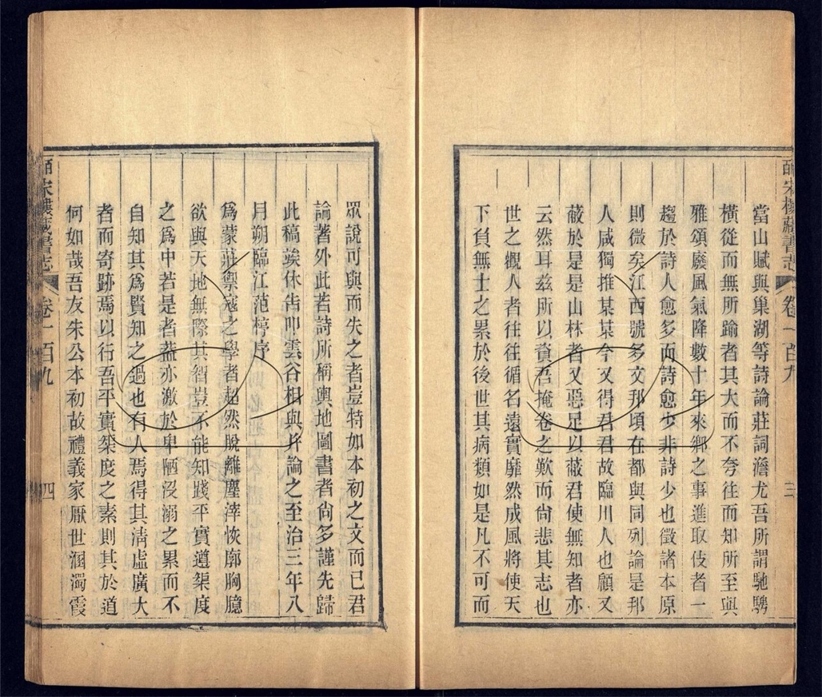 當山賦與巢湖等詩論莊詞澹尤吾所謂馳騁
橫從而無所踰者其大而不夸往而知所至與
雅頌廢風氣降數十年來鄉之事進取伎者一
趨於詩人愈多而詩愈少非詩少也徵諸本原
則微矣江西號多文邦頃在都與同列論是邦
人咸獨推某某今又得吾君故臨川人也顧又
蔵於是是山林者又惡足以蔵君使無知者亦
云然耳茲所以資吾掩卷之歎而尙悲其志也
世之觀人者往往循名遠實靡然成風將使天
下負無士之累於後世其病類如是凡不可而
皕宋樓藏書志 卷一百九 三
眾說可與而失之者豈特如本初之文而已君
論著外此若詩所稱輿地圖書者尙多謹先歸
此稿俟休告叩雲谷相與幷論之至治三年八
月朔臨江范梈序
爲蒙莊禦寇之學者超然脫離塵滓恢廓胸臆
欲與天地無際其智豈不能知踐平實遵榘度
之爲中若是者葢亦激於卑陋沒溺之累而不
自知其爲賢知之過也有人焉得其淸虛廣大
者而寄跡焉以行吾平實榘度之素則其於道
何如哉吾友朱公本初故禮義家厭世溷濁霞
皕宋樓藏書志 卷一百九 四